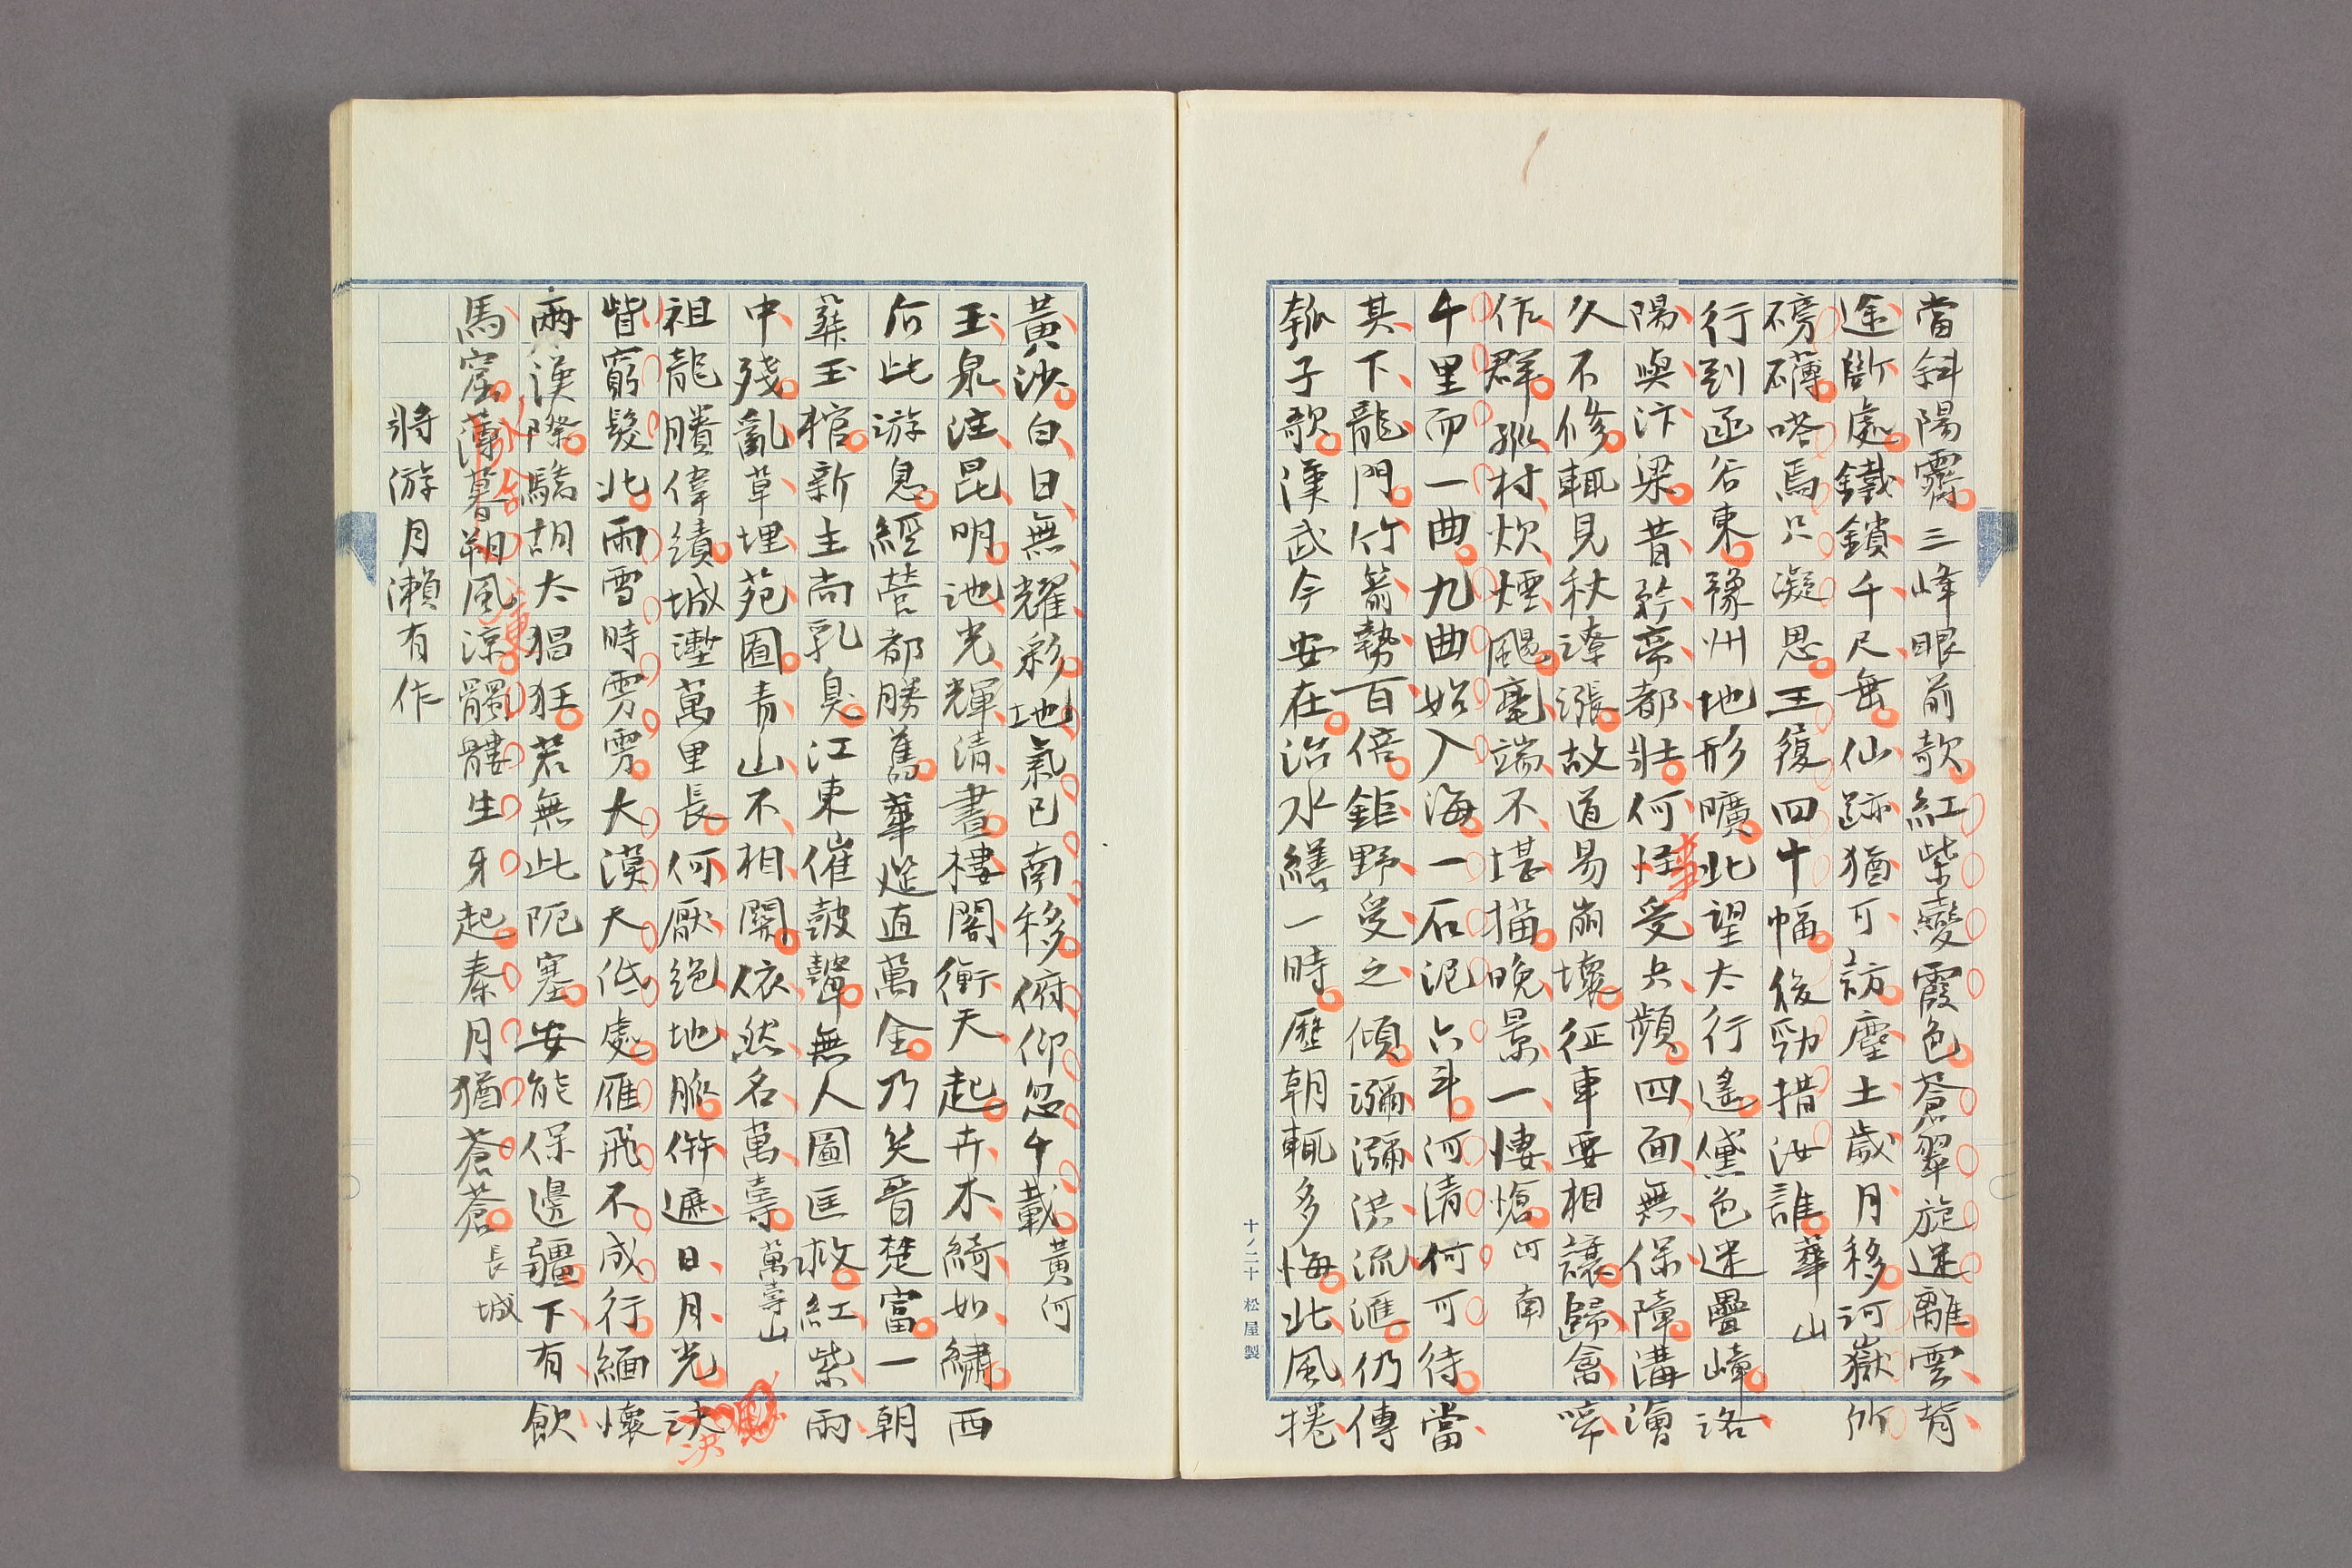 當斜陽霽三峰眼前歌紅紫變霞色蒼翠旋迷離雲背
途斷處鐵鎖千尺垂仙跡猶可訪塵土歲月移河嶽所
磅礴嗒焉只凝思王復四十幅後勁措汝誰華山
行到函谷東豫州地形曠北望太行遙黛色迷疊嶂洛
陽與汴梁昔矜帝都壯何怪受兵頻四面無保障溝澮
久不修輒見秋潦漲故道易崩壞征車要相讓歸禽啼
作群孤村炊煙颺毫端不堪描晚景一悽愴河南
千里而一曲九曲始入海一石泥六斗河清何可待當
其下龍門竹箭勢百倍鉅野受之傾瀰瀰洪流匯仍傳
瓠子歌漢武今安在治水繕一時歷朝輒多悔北風捲
十ノ二十 松屋製
黃沙白日無耀彩地氣已南移俯仰忽千載黃河
玉泉注昆明池光輝清晝樓閣衝天起卉木綺如繡西
后此游息經營都勝舊華筵直萬金乃笑晉楚富一朝
葬玉棺新主尚乳臭江東催鼓聲無人圖匡救紅紫雨
中殘亂草埋苑囿青山不相關依然名萬壽萬壽山
祖龍賸偉績城塹萬里長何厭絕地脈併遮日月光決
眥窮髮北雨雪時雱雱大漠天低處雁飛不成行緬懷
兩漢際驕胡太猖狂若無此阨塞安能保邊疆下有飲
馬窟薄暮朔風涼髑髏生牙起秦月猶蒼蒼長城
將游月瀨有作
決